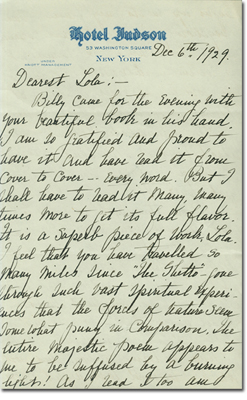 Hotel Judson
53 Washington Square
New York
Dec 6th, 1929.
Dearest Lola:—
Billy came for the evening with
your beautiful book in his hand.
I am so gratified and proud to
have it and have read it from
cover to cover — every word. But I
shall have to read it many, many
times more to get its full flavor.
It is a superb piece of work, Lola.
I feel that you have travelled so
many miles since "The Ghetto" – gone
through such vast spiritual experi-
ences that the forces of nature seem
somewhat puny in comparison. The
entire majestic poem appears to
me to be suffused by a burning
light! As I read it I too am